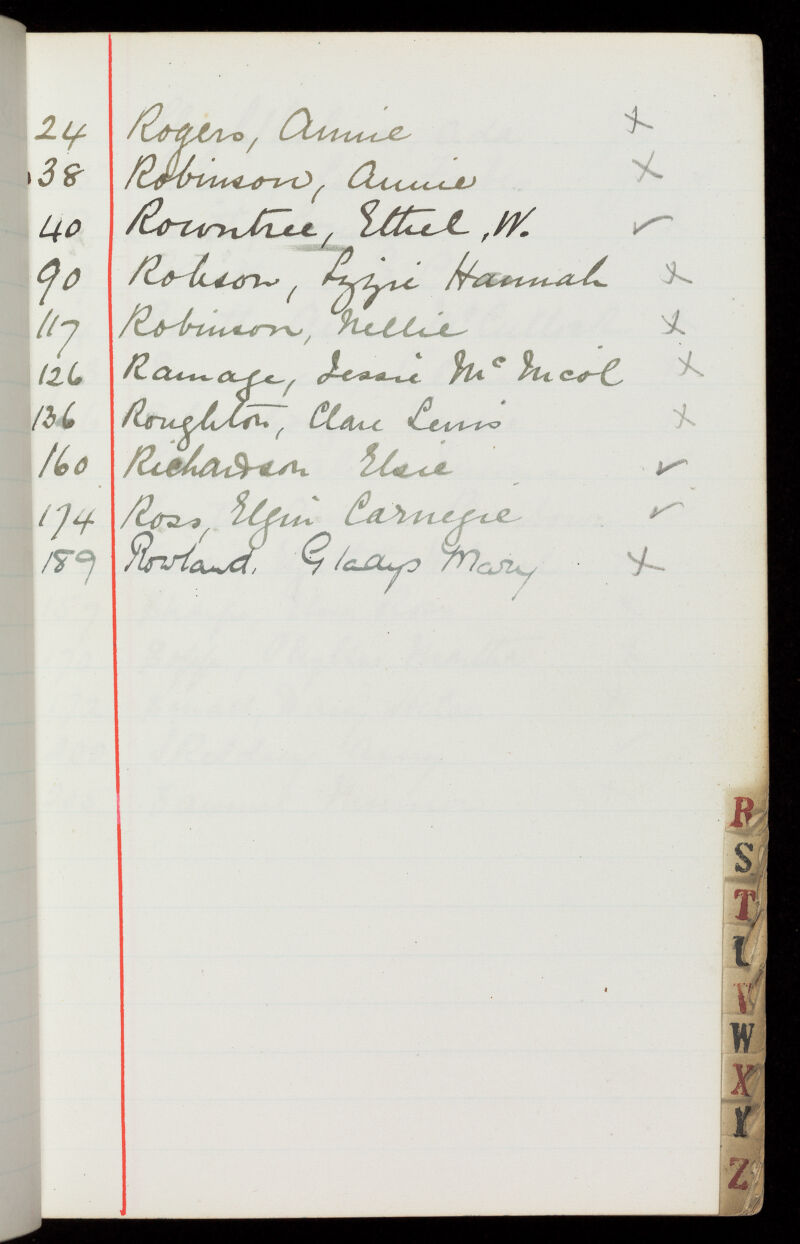 24 Rogers, Annie x
38 Robinson, Annie x
40 Rowntree, Ethel, W. ✓
90 Robson, Lizzie Hannah x
117 Robinson, Nellie x
126 Ramage, Jessie Mc Nicol x
136 Roughton, Clare Lewis x
160 Richardson Elsie ✓
174 Ross, Elgin Carnegie ✓
189 Rowland. Gladys Mary x
R
S
T
U
V
W
X
Y
Z